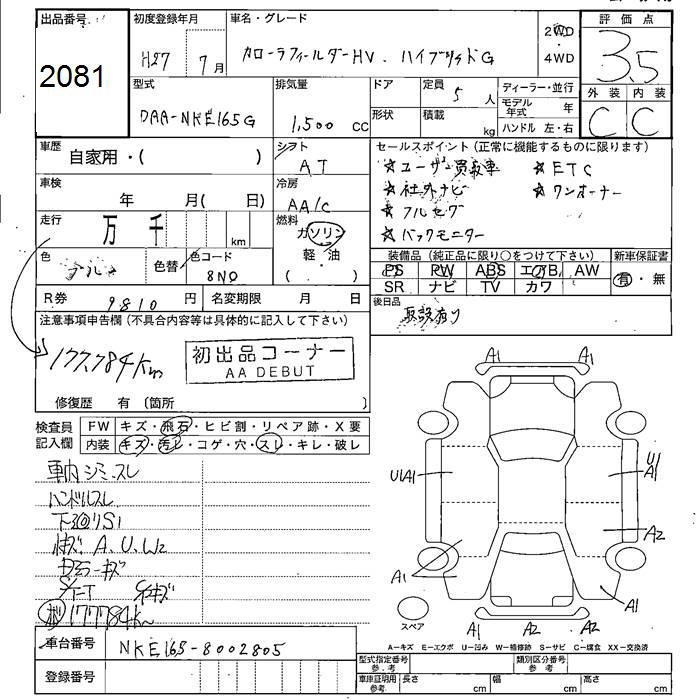 出品番号
2081
初度登録年月
H27 7月
車名・グレード
カローラフィールダーHV.ハイブリッドG
2WD
・
4WD
評価点
3.5
外装 内装
C C
型式
DAA-NKE165G
排気量
1,500 cc
ドア
形状
定員
5 人
積載
kg
ディーラー・並行
モデル年式 年
ハンドル 左・右
車歴
自家用・( )
シフト
AT
セールスポイント(正常に機能するものに限ります)
☆ユーザー買取車 ☆ETC
☆社外ナビ ☆ワンオーナー
☆フルセグ
☆バックモニター
車検
年 月( 日)
冷房
AA/C
走行
万 千 km
燃料
ガソリン
軽・油
( )
色
色替
色コード
8N0
装備品(純正品に限り○をつけて下さい)
PS PW ABS エアB AW
SR ナビ TV カワ
新車保証書
有・無
R券
9810円
名変期限 月 日
後日品
取説有り
注意事項申告欄(不具合内容等は具体的に記入して下さい)
177,784km
初出品コーナー
AA DEBUT
修復歴 有〔箇所 〕
検査員記入欄
FW キズ・飛石・ヒビ割・リペア跡・X要
内装 キズ・汚レ・コゲ・穴・スレ・キレ・破レ
車内シミ.スレ
ハンドルスレ
下廻りS1
A.U.W2
177784km
車台番号
NKE165-8002805
登録番号
A1 A1
U1A1
U1
A1
A2
A1
A1
スペア
A1 A2 A2
A－キズ E－エクボ U－凹み W－補修跡 S－サビ C－腐食 XX－交換済
型式指定番号
参考
類別区分番号
参考
車庫証明用
参考
長さ cm 幅 cm 高さ cm